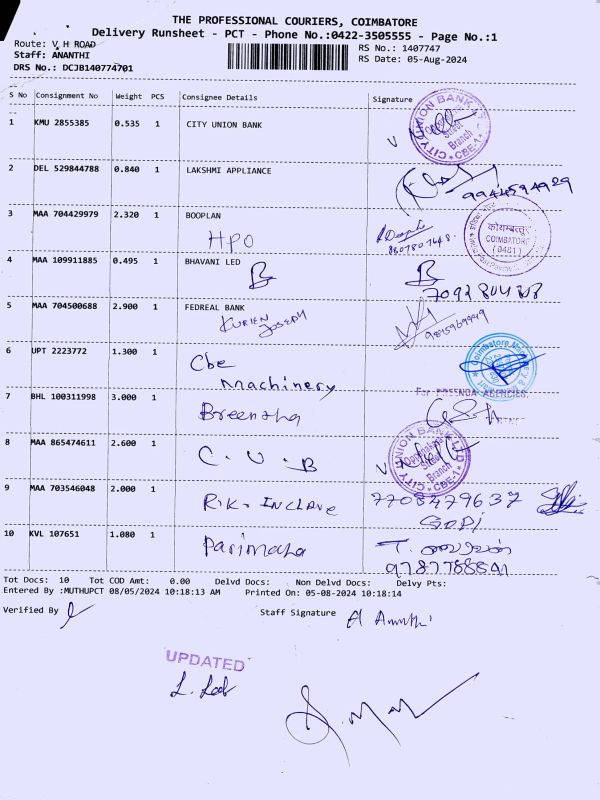 THE PROFESSIONAL COURIERS, COIMBATORE
Delivery Runsheet - PCT - Phone No.:0422-3505555 - Page No.:1
Route: V H ROAD
RS No.: 1407747
Staff: ANANTHI
RS Date: 05-Aug-2024
DRS No.: DCJB140774701
S No Consignment No Weight PCS Consignee Details Signature
1 KMU 2855385 0.535 1 CITY UNION BANK
CITY UNION BANK LTD
Street
Branch
CBE-1
2 DEL 529844788 0.840 1 LAKSHMI APPLIANCE
9944594929
3 MAA 704429979 2.320 1 BOOPLAN
HPO
कोयम्बत्तूर
COIMBATORE
(0481)
4 MAA 109911885 0.495 1 BHAVANI LED
B B
5 MAA 704500688 2.900 1 FEDREAL BANK
KURIEN JOSEPH
9815969949
6 UPT 2223772 1.300 1
Cbe
Machinery
7 BHL 100311998 3.000 1
For PREENDA AGENCIES,
8 MAA 865474611 2.600 1
C. U. B
CITY UNION BANK LTD
Street
Branch
CBE-1
9 MAA 703546048 2.000 1
7708479637
GOPI
10 KVL 107651 1.080 1
Tot Docs: 10 Tot COD Amt: 0.00 Delvd Docs: Non Delvd Docs: Delvy Pts:
Entered By :MUTHUPCT 08/05/2024 10:18:13 AM Printed On: 05-08-2024 10:18:14
Verified By
Staff Signature
UPDATED